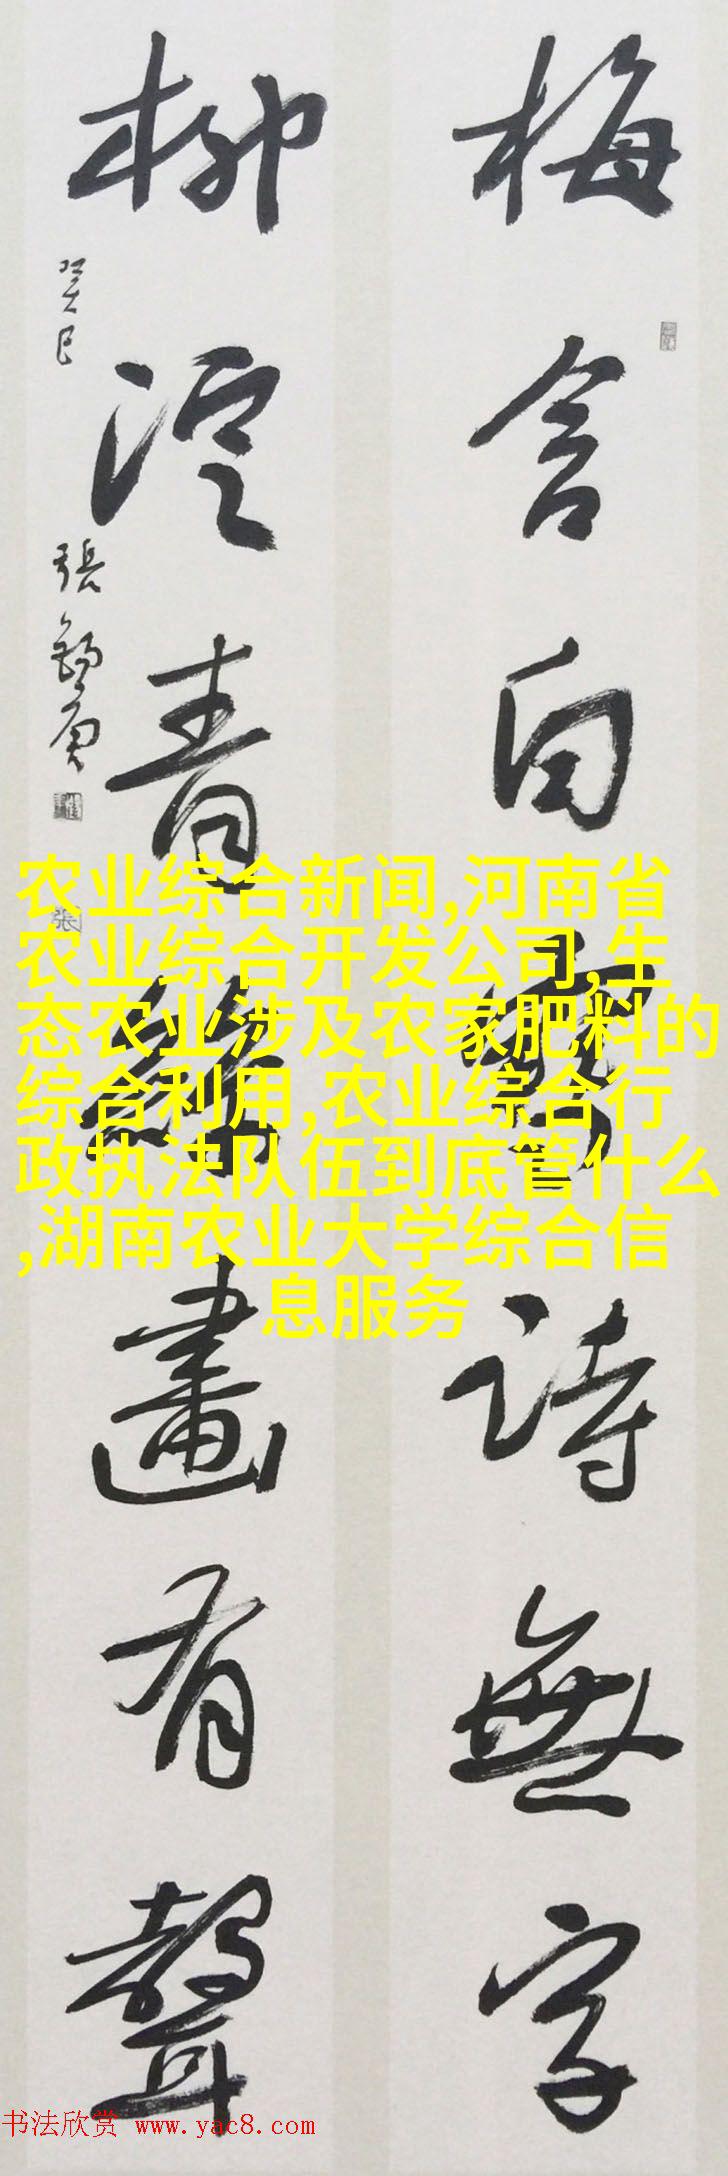 梅含白雪詩無字
柳淀青絲畫有聲
癸巳
張錦廣
張
农业综合新闻,河南省
农业综合开发公司,生
态农业涉及农家肥料的
综合利用,农业综合行
政执法队伍到底管什么
,湖南农业大学综合信
息服务
书法欣赏 www.yac8.com